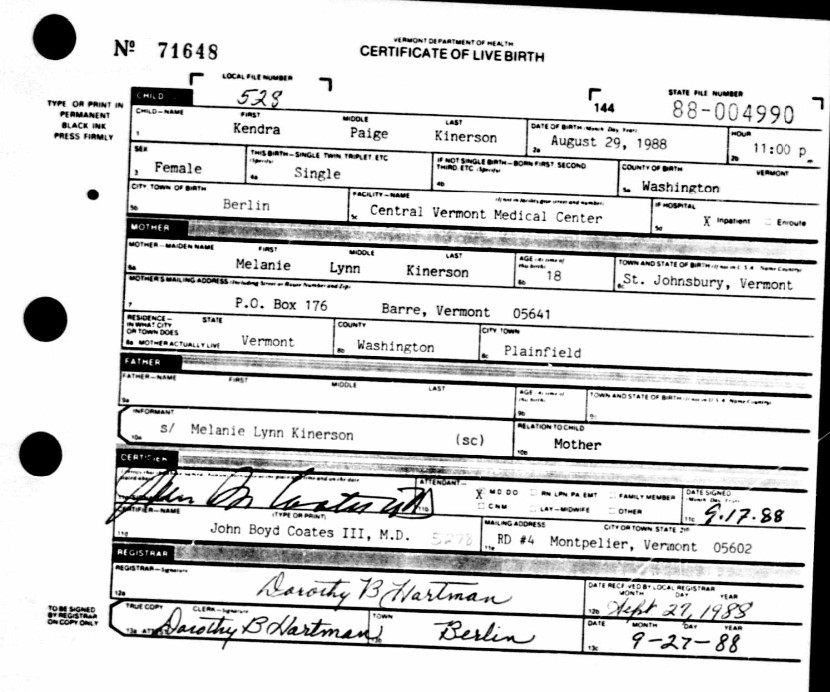 VERMONT DEPARTMENT OF HEALTH
Nº 71648 CERTIFICATE OF LIVE BIRTH
LOCAL FILE NUMBER STATE FILE NUMBER
528 144 88-004990
TYPE OR PRINT IN
PERMANENT
BLACK INK
PRESS FIRMLY
CHILD
CHILD—NAME FIRST MIDDLE LAST DATE OF BIRTH (Month, Day, Year) HOUR
1 Kendra Paige Kinerson 2a August 29, 1988 2b 11:00 p m
SEX THIS BIRTH—SINGLE, TWIN, TRIPLET, ETC. (Specify) IF NOT SINGLE BIRTH—BORN FIRST, SECOND THIRD, ETC. (Specify) COUNTY OF BIRTH VERMONT
3 Female 4a Single 4b 5a Washington
CITY, TOWN OF BIRTH FACILITY—NAME (If not in facility, give street and number) IF HOSPITAL
5b Berlin 5c Central Vermont Medical Center 5d X Inpatient Enroute
MOTHER
MOTHER—MAIDEN NAME FIRST MIDDLE LAST AGE (At time of this birth) TOWN AND STATE OF BIRTH (If not in U.S.A. Name Country)
6a Melanie Lynn Kinerson 6b 18 6c St. Johnsbury, Vermont
MOTHER'S MAILING ADDRESS (Including Street or Route Number and Zip)
7 P.O. Box 176 Barre, Vermont 05641
RESIDENCE— STATE COUNTY CITY, TOWN
IN WHAT CITY
OR TOWN DOES
8a MOTHER ACTUALLY LIVE Vermont 8b Washington 8c Plainfield
FATHER
FATHER—NAME FIRST MIDDLE LAST AGE (At time of this birth) TOWN AND STATE OF BIRTH (If not in U.S.A. Name Country)
9a 9b 9c
INFORMANT RELATION TO CHILD
10a s/ Melanie Lynn Kinerson (sc) 10b Mother
CERTIFIER
ATTENDANT— X M.D. D.O. RN, LPN, PA, EMT FAMILY MEMBER DATE SIGNED (Month, Day, Year)
11b C.N.M. LAY-MIDWIFE OTHER 11c 9.17.88
CERTIFIER—NAME (TYPE OR PRINT) MAILING ADDRESS CITY OR TOWN, STATE, ZIP
11d John Boyd Coates III, M.D. 5278 11e RD #4 Montpelier, Vermont 05602
REGISTRAR
REGISTRAR—Signature DATE RECEIVED BY LOCAL REGISTRAR
MONTH DAY YEAR
12a Dorothy B Hartman 12b Sept 27, 1988
TO BE SIGNED
BY REGISTRAR
ON COPY ONLY
TRUE COPY CLERK—Signature TOWN DATE MONTH DAY YEAR
13a ATTEST Dorothy B Hartman 13b Berlin 13c 9-27-88